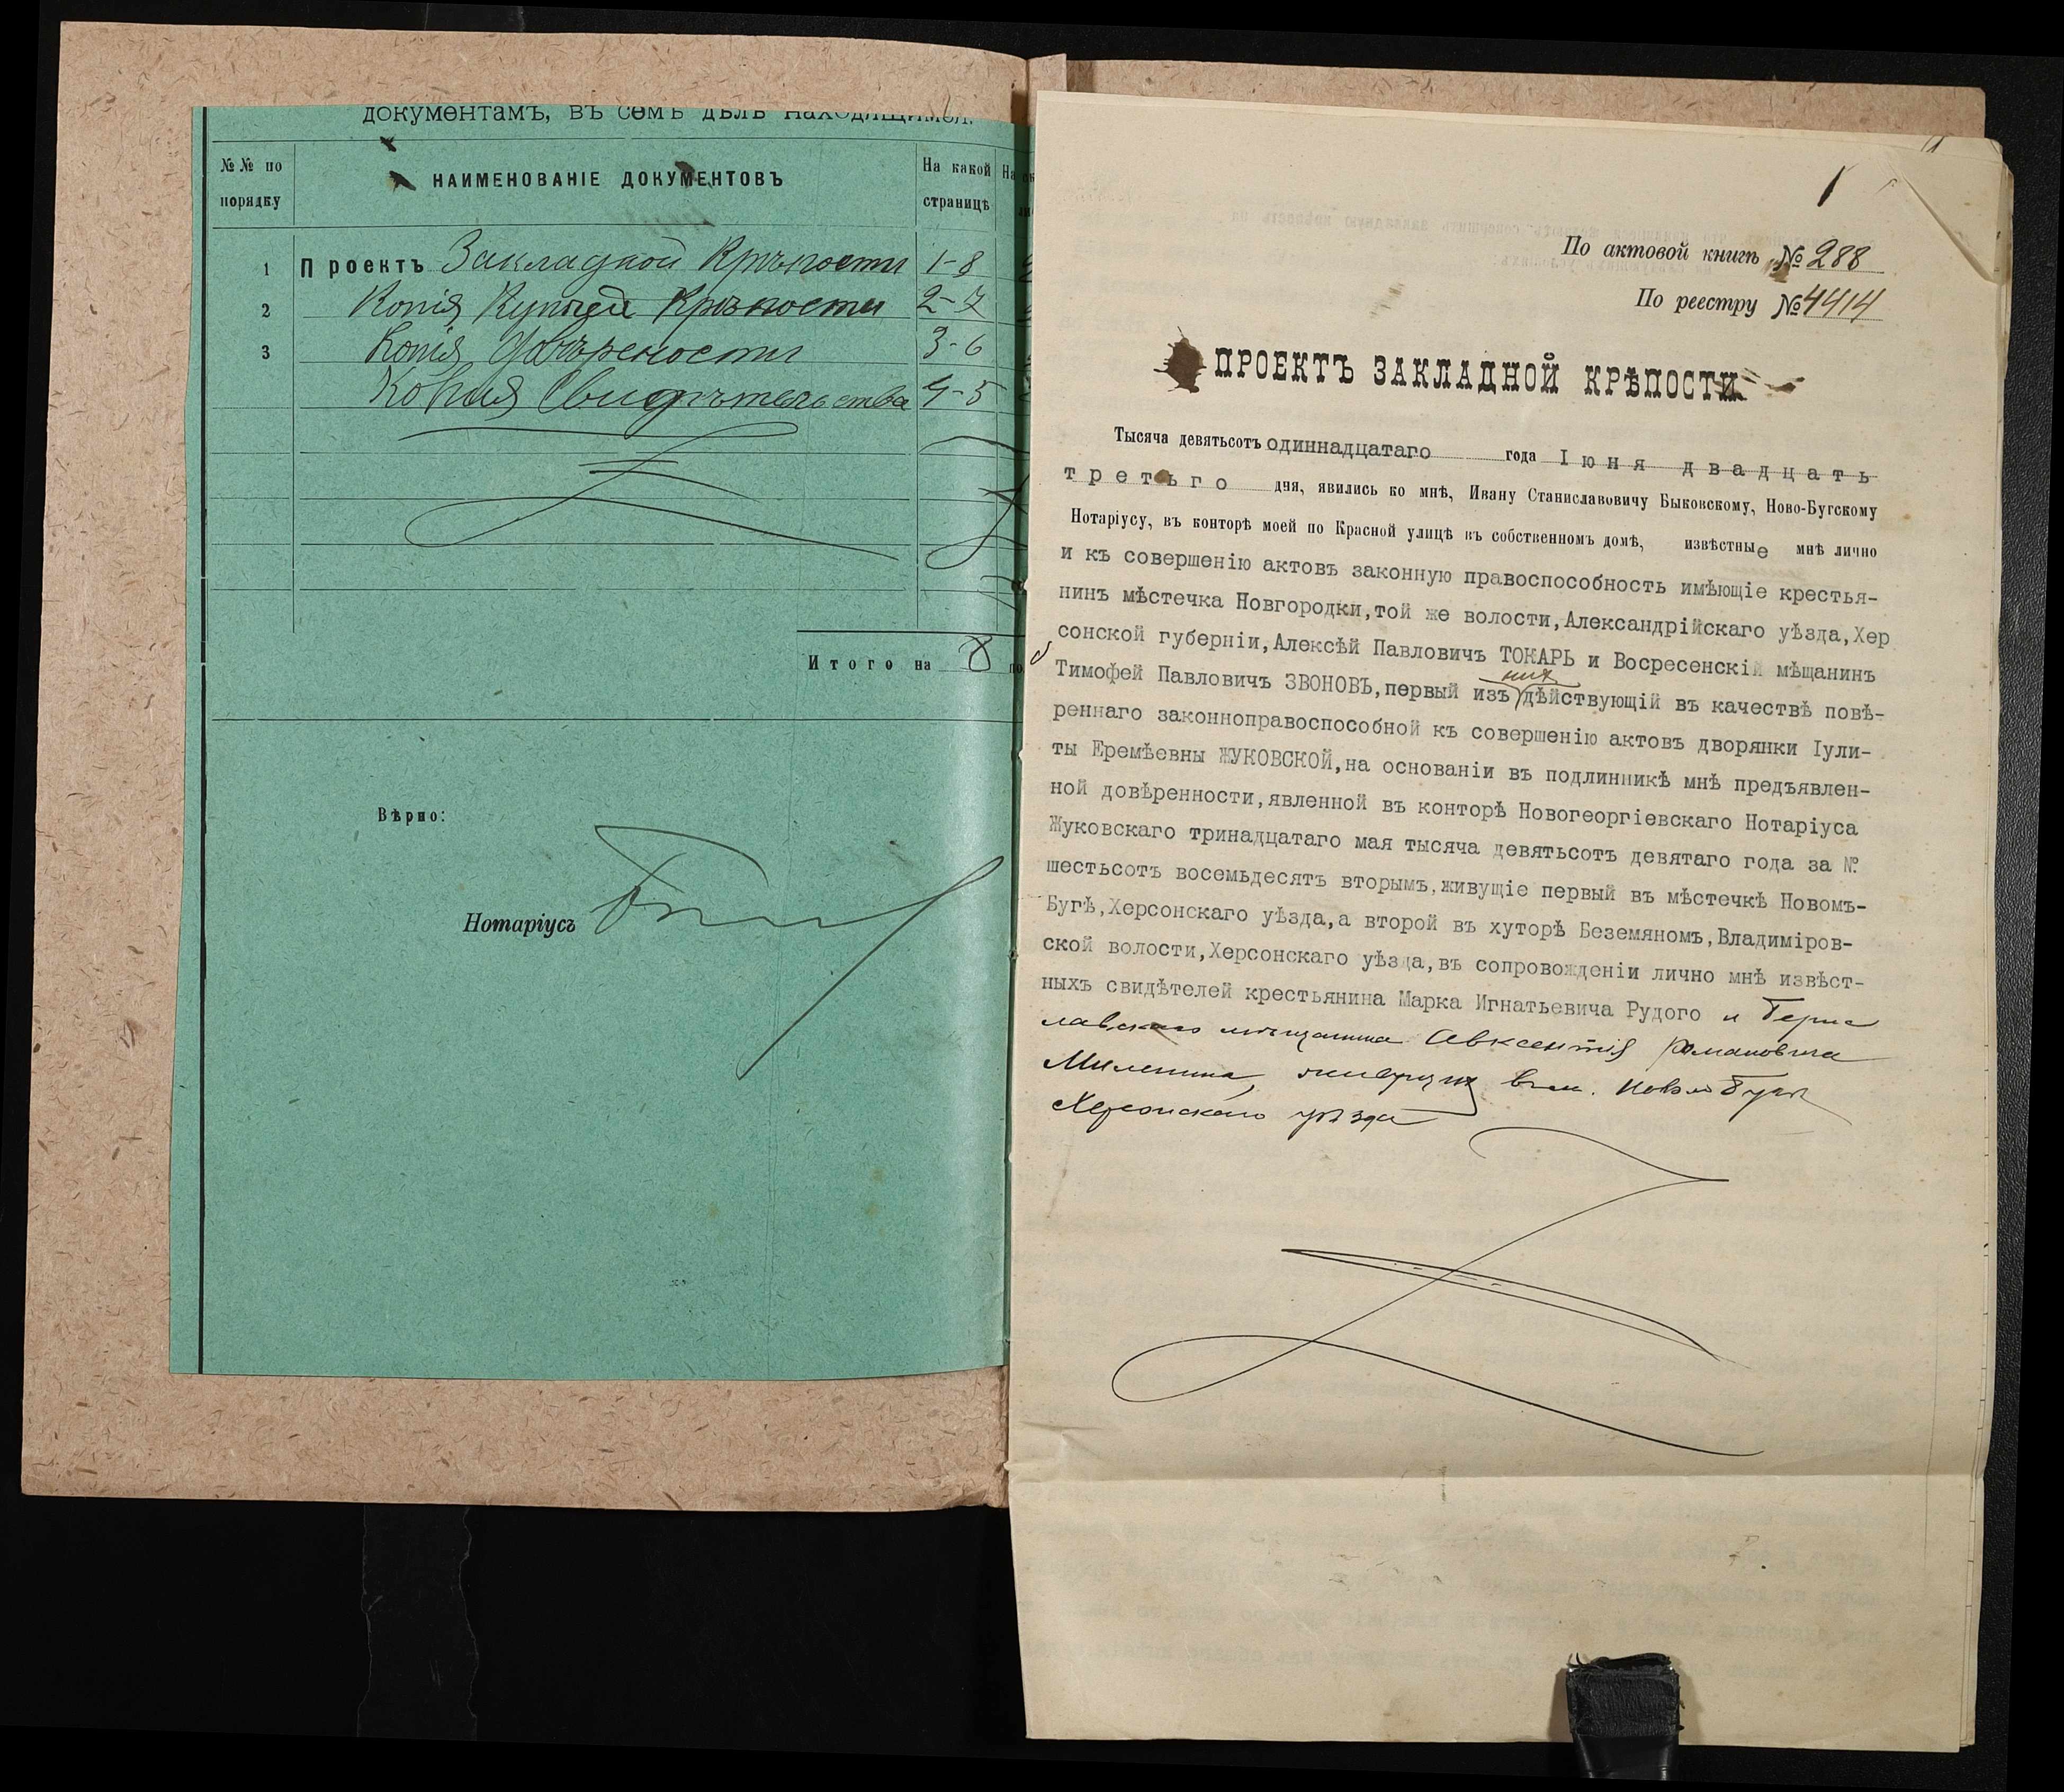 документамъ, въ семъ дѣлѣ находящимся.
№№ по порядку
НАИМЕНОВАНІЕ ДОКУМЕНТОВЪ
На какой страницѣ
На
1 Проектъ Закладной Крѣпости 1-8
2 Копія Купчей Крѣпости 2-7
3 Копія Довѣрености 3-6
Копия Свидѣтельства 4-5
Итого на 8 по
Вѣрно:
Нотаріусъ
1
По актовой книгѣ № 288
По реестру № 4414
ПРОЕКТЪ ЗАКЛАДНОЙ КРѢПОСТИ
Тысяча девятьсотъ одиннадцатаго года Іюня двадцать
третьго дня, явились ко мнѣ, Ивану Станиславовичу Быковскому, Ново-Бугскому
Нотаріусу, въ конторѣ моей по Красной улицѣ въ собственномъ домѣ, извѣстные мнѣ лично
и къ совершенію актовъ законную правоспособность имѣющіе крестья-
нинъ мѣстечка Новгородки,той же волости,Александрійскаго уѣзда,Хер
сонской губерніи,Алексѣй Павловичъ ТОКАРЬ и Восресенскій мѣщанинъ
Тимофей Павловичъ ЗВОНОВЪ,первый изъ нихъ дѣйствующій въ качествѣ повѣ-
реннаго законноправоспособной къ совершенію актовъ дворянки Іули-
ты Еремѣевны ЖУКОВСКОЙ,на основаніи въ подлинникѣ мнѣ предъявлен-
ной довѣренности,явленной въ конторѣ Новогеоргіевскаго Нотаріуса
Жуковскаго тринадцатаго мая тысяча девятьсотъ девятаго года за №
шестьсотъ восемьдесятъ вторымъ,живущіе первый въ мѣстечкѣ Новомъ-
Бугѣ,Херсонскаго уѣзда,а второй въ хуторѣ Беземяномъ,Владиміров-
ской волости,Херсонскаго уѣзда,въ сопровожденіи лично мнѣ извѣст-
ныхъ свидѣтелей крестьянина Марка Игнатьевича Рудого и Берис
лавскаго мѣщанина Авксентія Романовича
Миленина, живущихъ въ м. Новомъ Бугѣ
Херсонскаго уѣзда